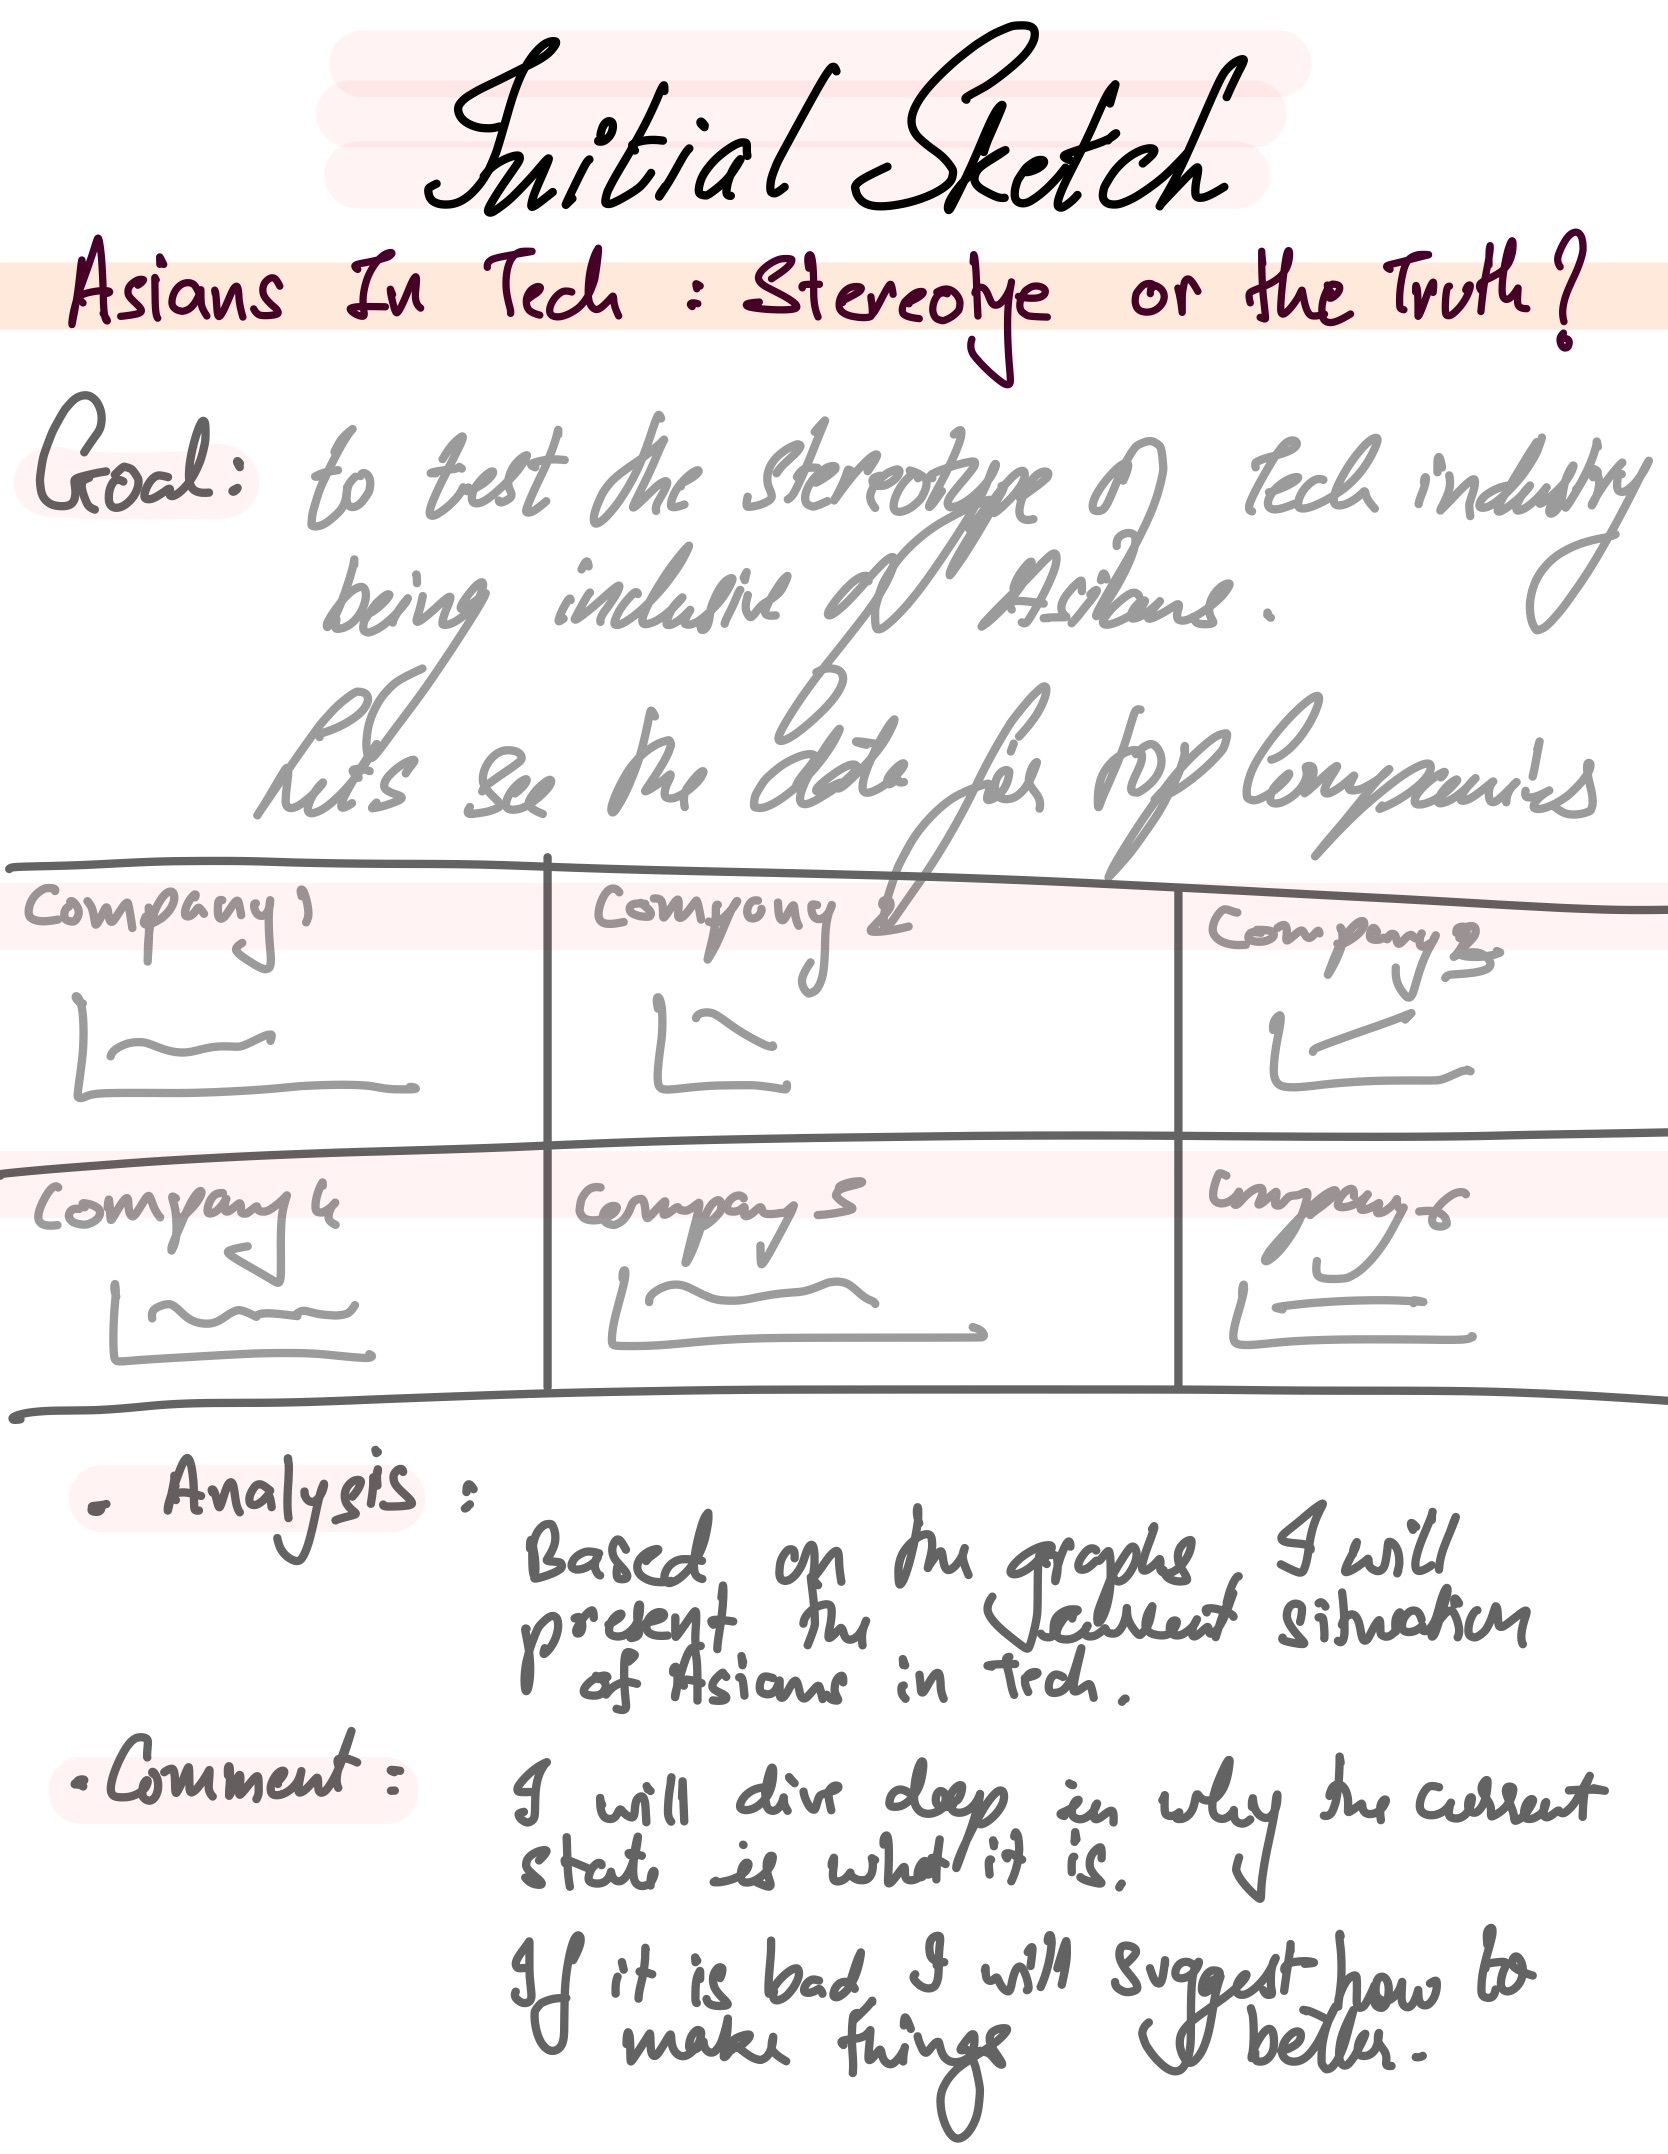 Initial Sketch
Asians In Tech : Stereotye or the Truth?
Goal: to test the stereotype of Tech industry
being inclusive of Asians.
Let's see the data for top Companies
Company 1
Company 2
Company 3
Company 4
Company 5
Company 6
. Analysis :
Based on the graphs I will
present the current situation
of Asians in Tech.
. Comment :
I will dive deep in why the current
state is what it is.
If it is bad I will suggest how to
make things better.